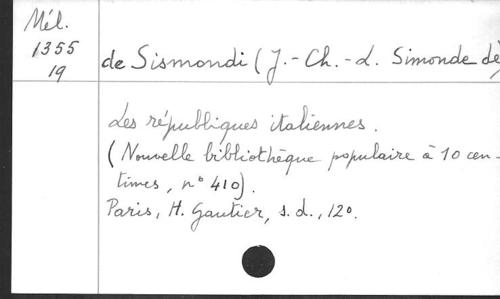 Mél.
1355
19
de Sismondi (J.-Ch.-L. Simonde de)
Les républiques italiennes.
(Nouvelle bibliothèque populaire à 10 cen-
times, n° 410).
Paris, H. Gautier, s.d., 12°.